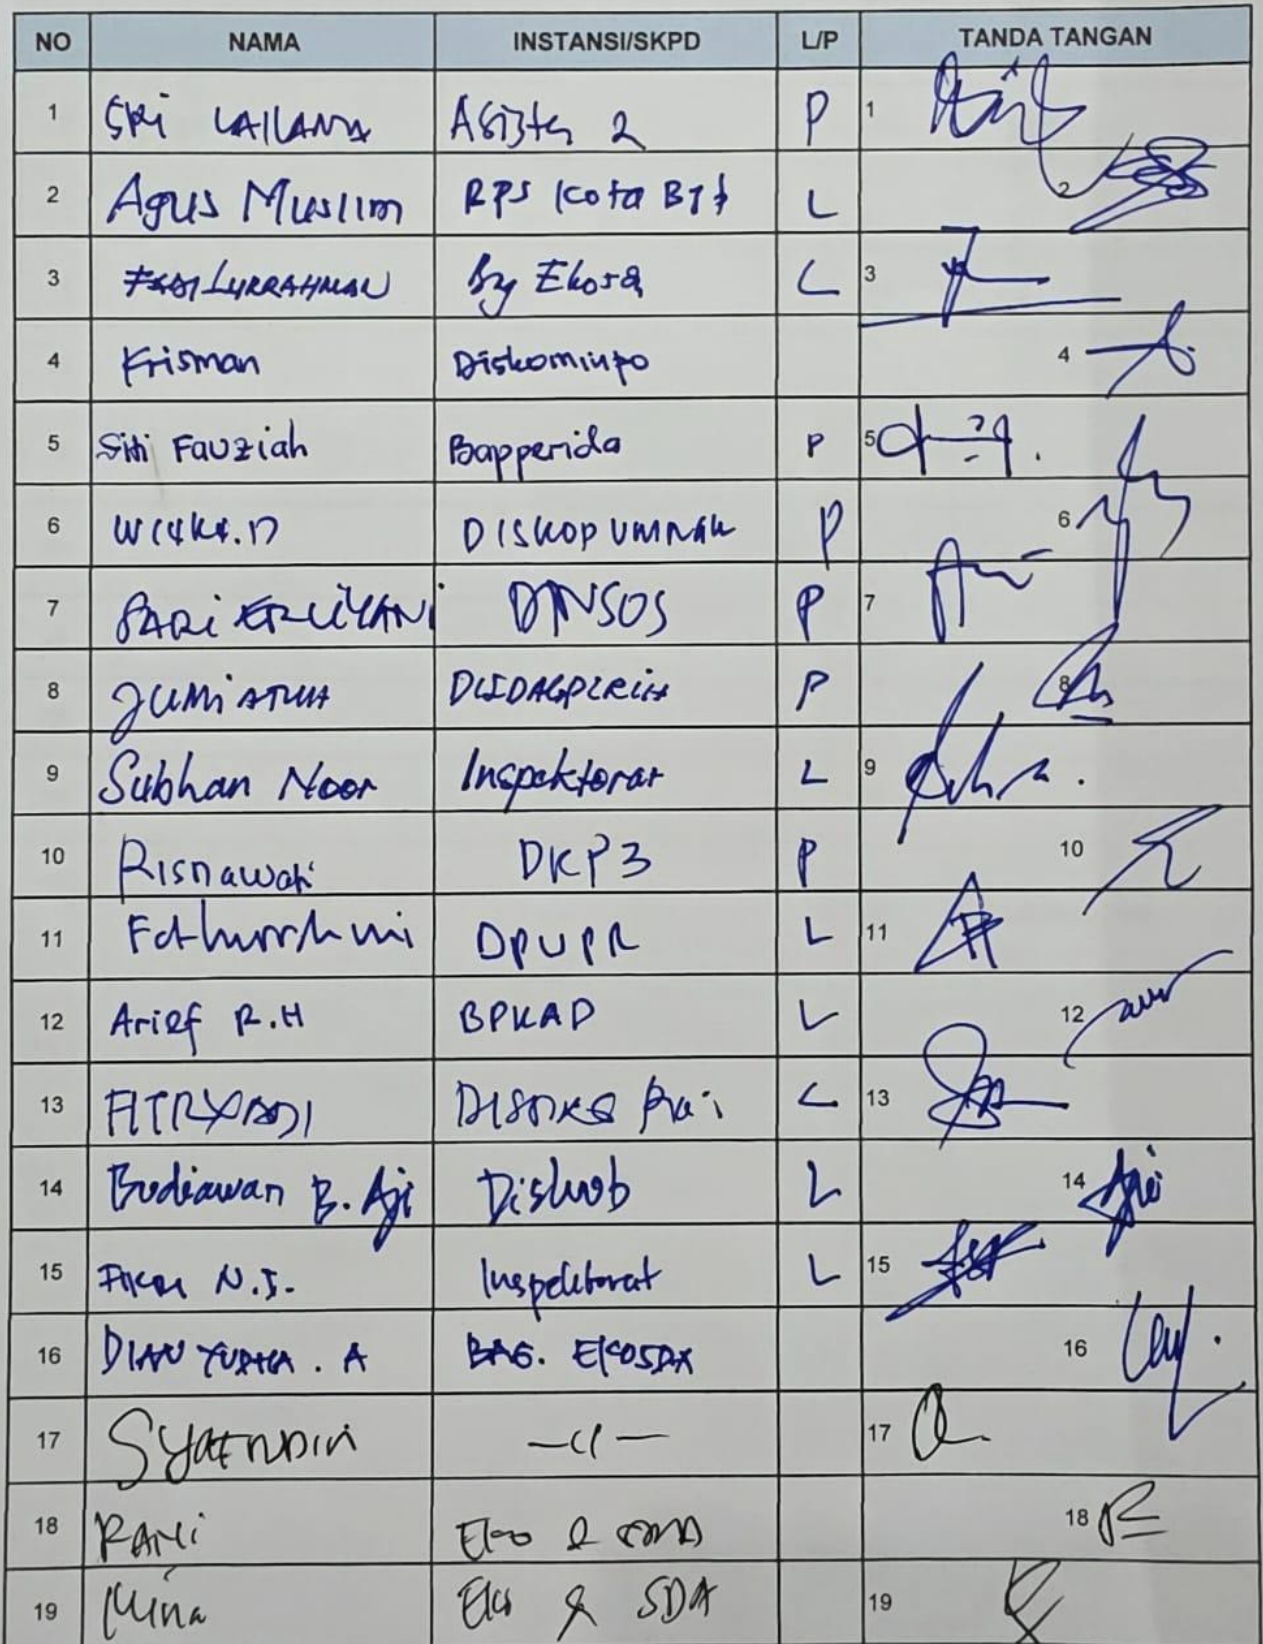 NO NAMA INSTANSI/SKPD L/P TANDA TANGAN
1 SRi LAILANA Asisten 2 P 1
2 Agus Muslim BPS Kota BJB L 2
3 By Ekosda L 3
4 Krisman Diskominfo 4
5 Siti Fauziah Bapperida P 5
6 DISKOPUMNAK P 6
7 SARi ERLIYANi DINSOS P 7
8 JUMiATUN P 8
9 Subhan Noor Inspektorat L 9
10 Risnawati DKP3 P 10
11 DPUPR L 11
12 Arief R.H BPKAD L 12
13 FITRYADI L 13
14 Budiawan B. Aji Dishub L 14
15 N.I. Inspektorat L 15
16 DIAN YUDHA . A BAG. EKOSDA 16
17 SYAFRUDIN —〃— 17
18 RAMi Eko & SDA 18
19 Mina Eko & SDA 19